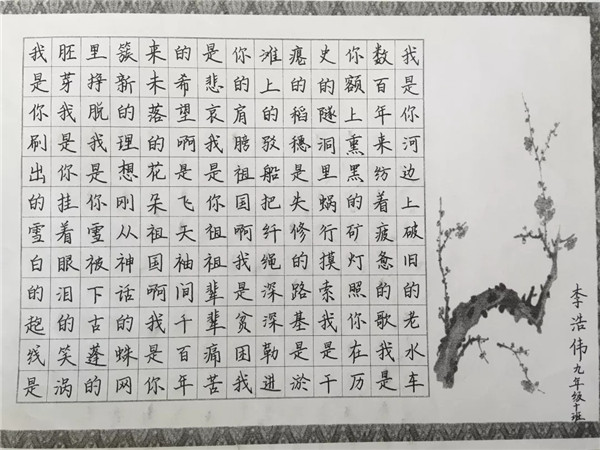 我是你河边上破旧的老水车
数百年来纺着疲惫的歌我是
你额上熏黑的矿灯照你在历
史的隧洞里蜗行摸索我是干
瘪的稻穗是失修的路基是淤
滩上的驳船把纤绳深深勒进
你的肩膀祖国啊我是贫困我
是悲哀我是你祖祖辈辈痛苦
的希望啊是飞天袖间千百年
来未落的花朵祖国啊我是你
簇新的理想刚从神话的蛛网
里挣脱我是你雪被下古莲的
胚芽我是你挂着眼泪的笑涡
我是你刷出的雪白的起线是
李浩伟九年级十班